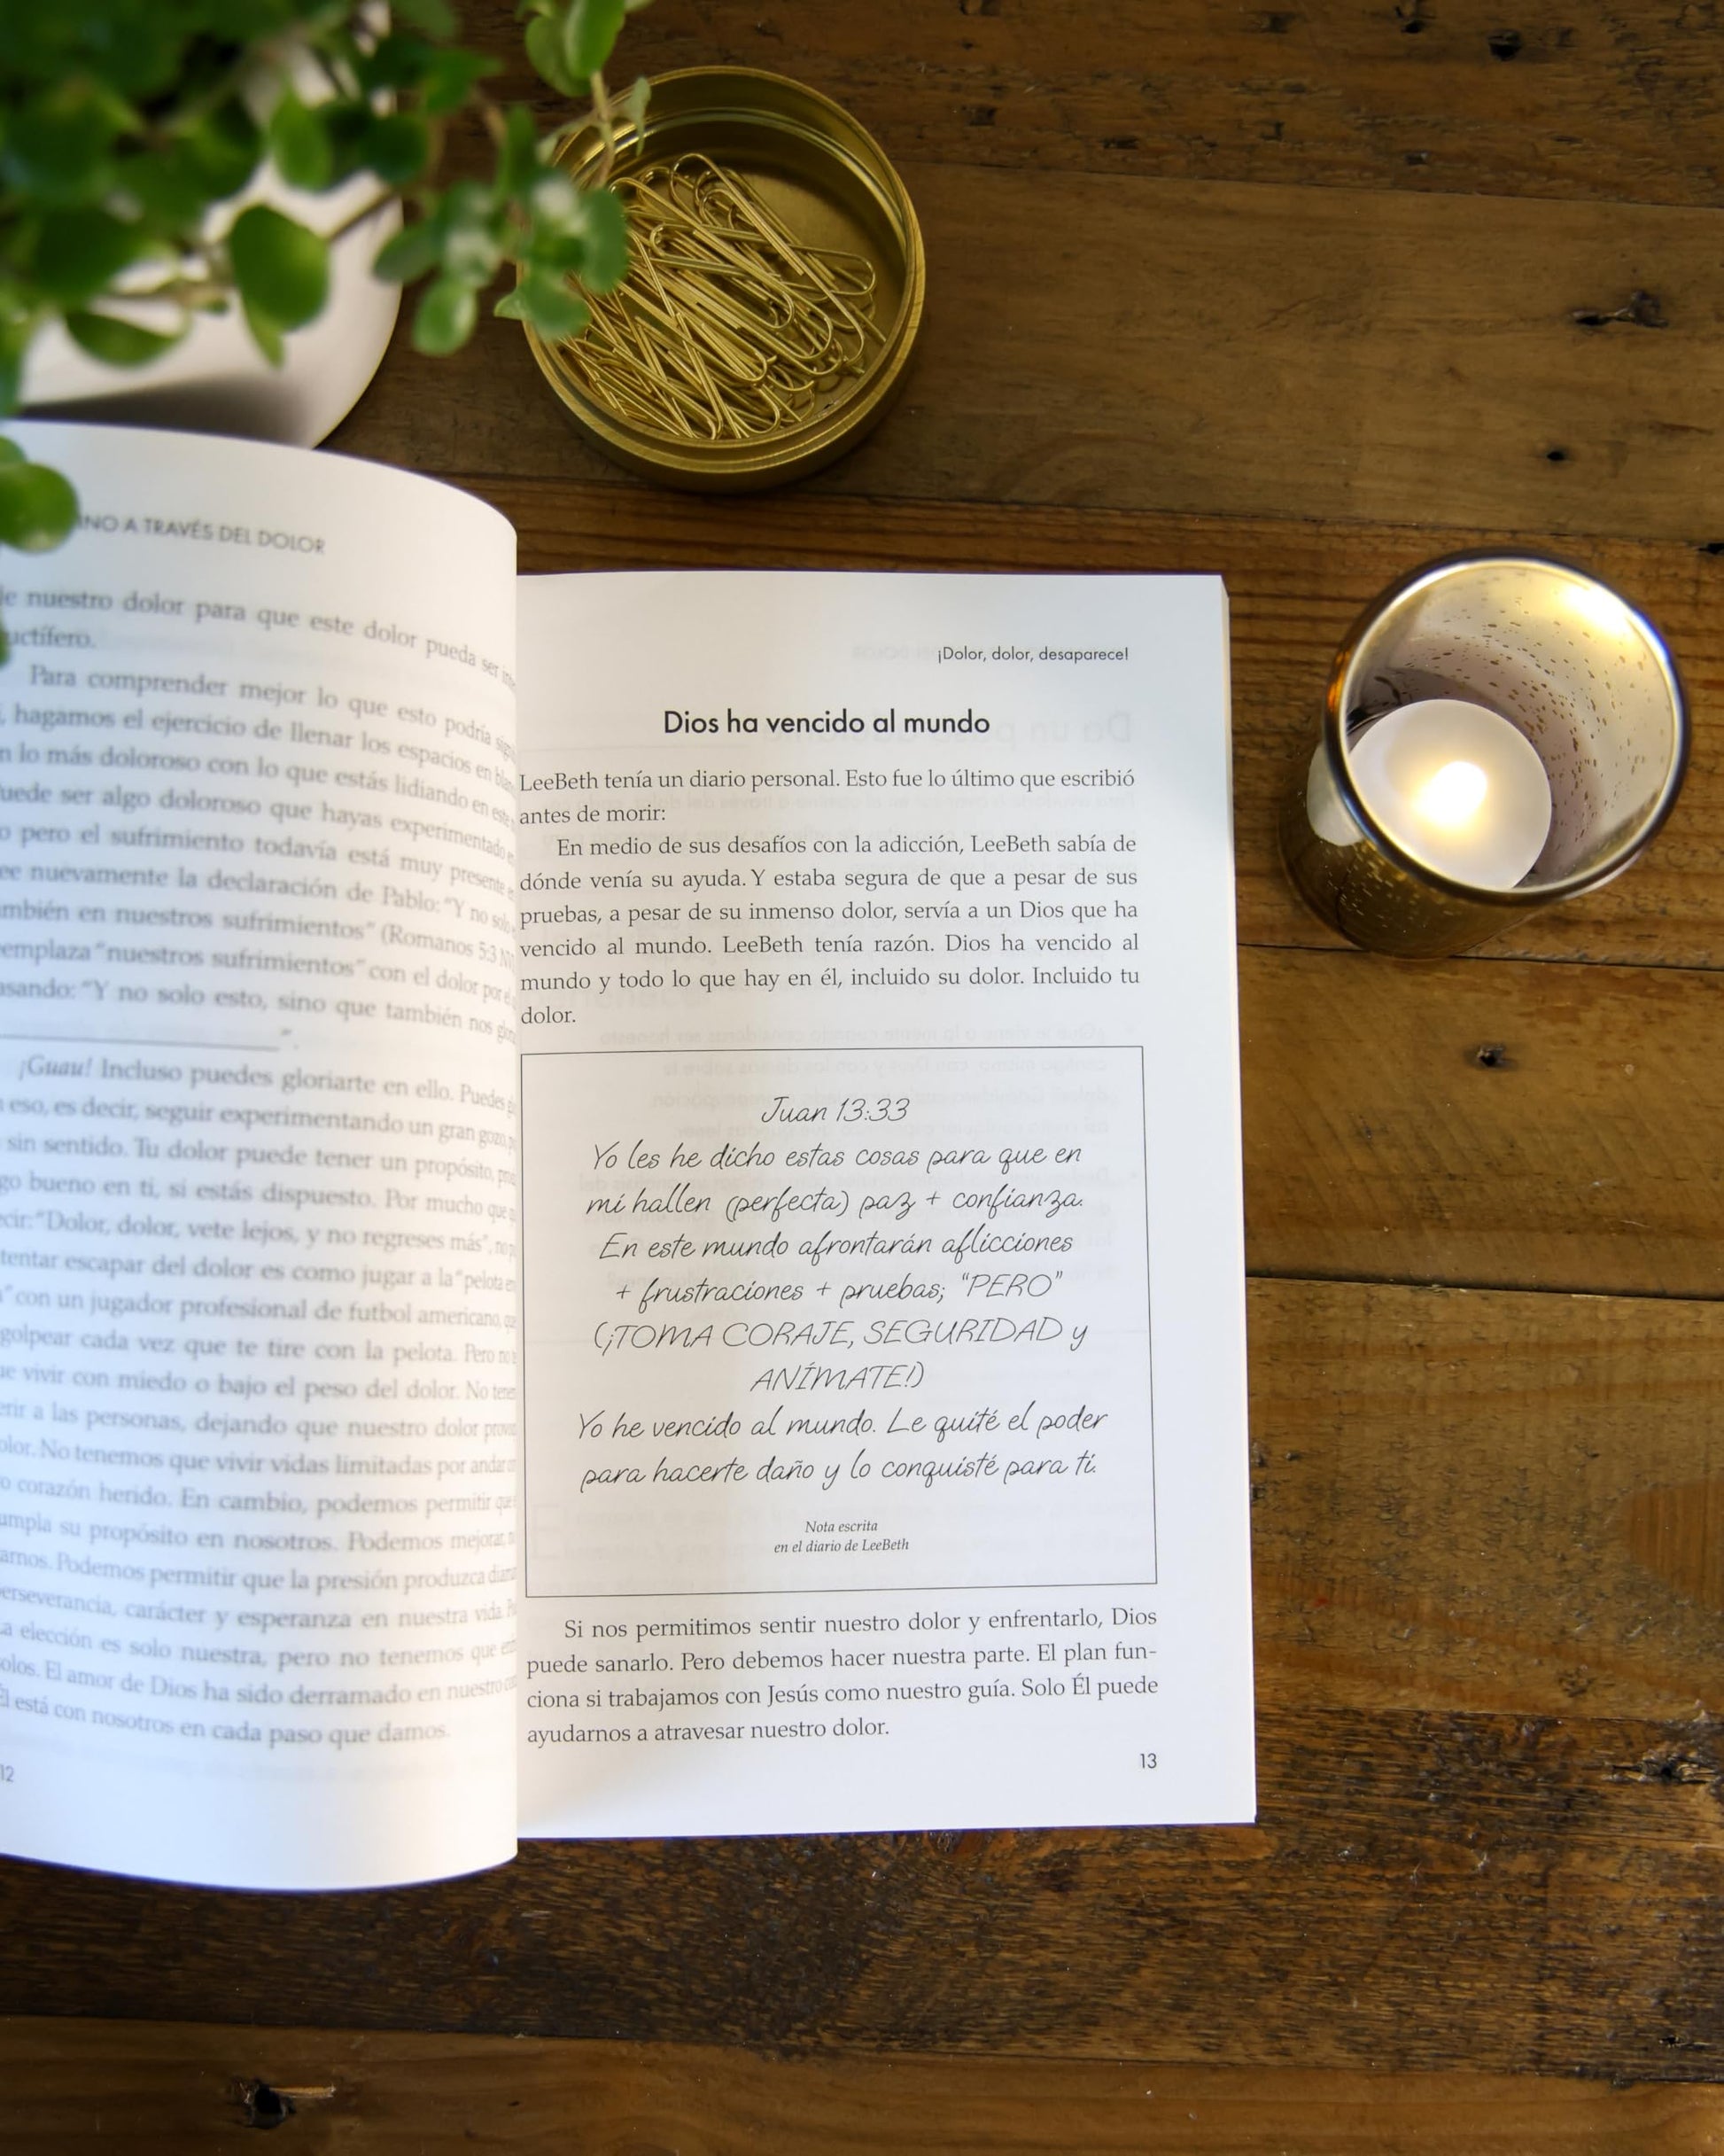 A TRAVÉS DEL DOLOR
nuestro dolor para que este dolor pueda ser
Para comprender mejor lo que esto podría
hagamos el ejercicio de llenar los espacios en
lo más doloroso con lo que estás lidiando en este
ser algo doloroso que hayas experimentado
pero el sufrimiento todavía está muy presente
nuevamente la declaración de Pablo: "Y no solo
en nuestros sufrimientos" (Romanos 5:3
"nuestros sufrimientos" con el dolor por
"Y no solo esto, sino que también nos
______".
¡Guau! Incluso puedes gloriarte en ello. Puedes
eso, es decir, seguir experimentando un gran gozo,
sin sentido. Tu dolor puede tener un propósito,
bueno en ti, si estás dispuesto. Por mucho que
"Dolor, dolor, vete lejos, y no regreses más",
escapar del dolor es como jugar a la "pelota
" con un jugador profesional de futbol americano,
golpear cada vez que te tire con la pelota. Pero
vivir con miedo o bajo el peso del dolor. No
a las personas, dejando que nuestro dolor
No tenemos que vivir vidas limitadas por
corazón herido. En cambio, podemos permitir
su propósito en nosotros. Podemos mejorar,
Podemos permitir que la presión produzca
carácter y esperanza en nuestra vida.
elección es solo nuestra, pero no tenemos que
El amor de Dios ha sido derramado en nuestro
Él está con nosotros en cada paso que damos.
12
¡Dolor, dolor, desaparece!
Dios ha vencido al mundo
LeeBeth tenía un diario personal. Esto fue lo último que escribió
antes de morir:
En medio de sus desafíos con la adicción, LeeBeth sabía de
dónde venía su ayuda. Y estaba segura de que a pesar de sus
pruebas, a pesar de su inmenso dolor, servía a un Dios que ha
vencido al mundo. LeeBeth tenía razón. Dios ha vencido al
mundo y todo lo que hay en él, incluido su dolor. Incluido tu
dolor.
Juan 13:33
Yo les he dicho estas cosas para que en
mí hallen (perfecta) paz + confianza.
En este mundo afrontarán aflicciones
+ frustraciones + pruebas; "PERO"
(¡TOMA CORAJE, SEGURIDAD y
ANÍMATE!)
Yo he vencido al mundo. Le quité el poder
para hacerte daño y lo conquisté para ti.
Nota escrita
en el diario de LeeBeth
Si nos permitimos sentir nuestro dolor y enfrentarlo, Dios
puede sanarlo. Pero debemos hacer nuestra parte. El plan fun-
ciona si trabajamos con Jesús como nuestro guía. Solo Él puede
ayudarnos a atravesar nuestro dolor.
13